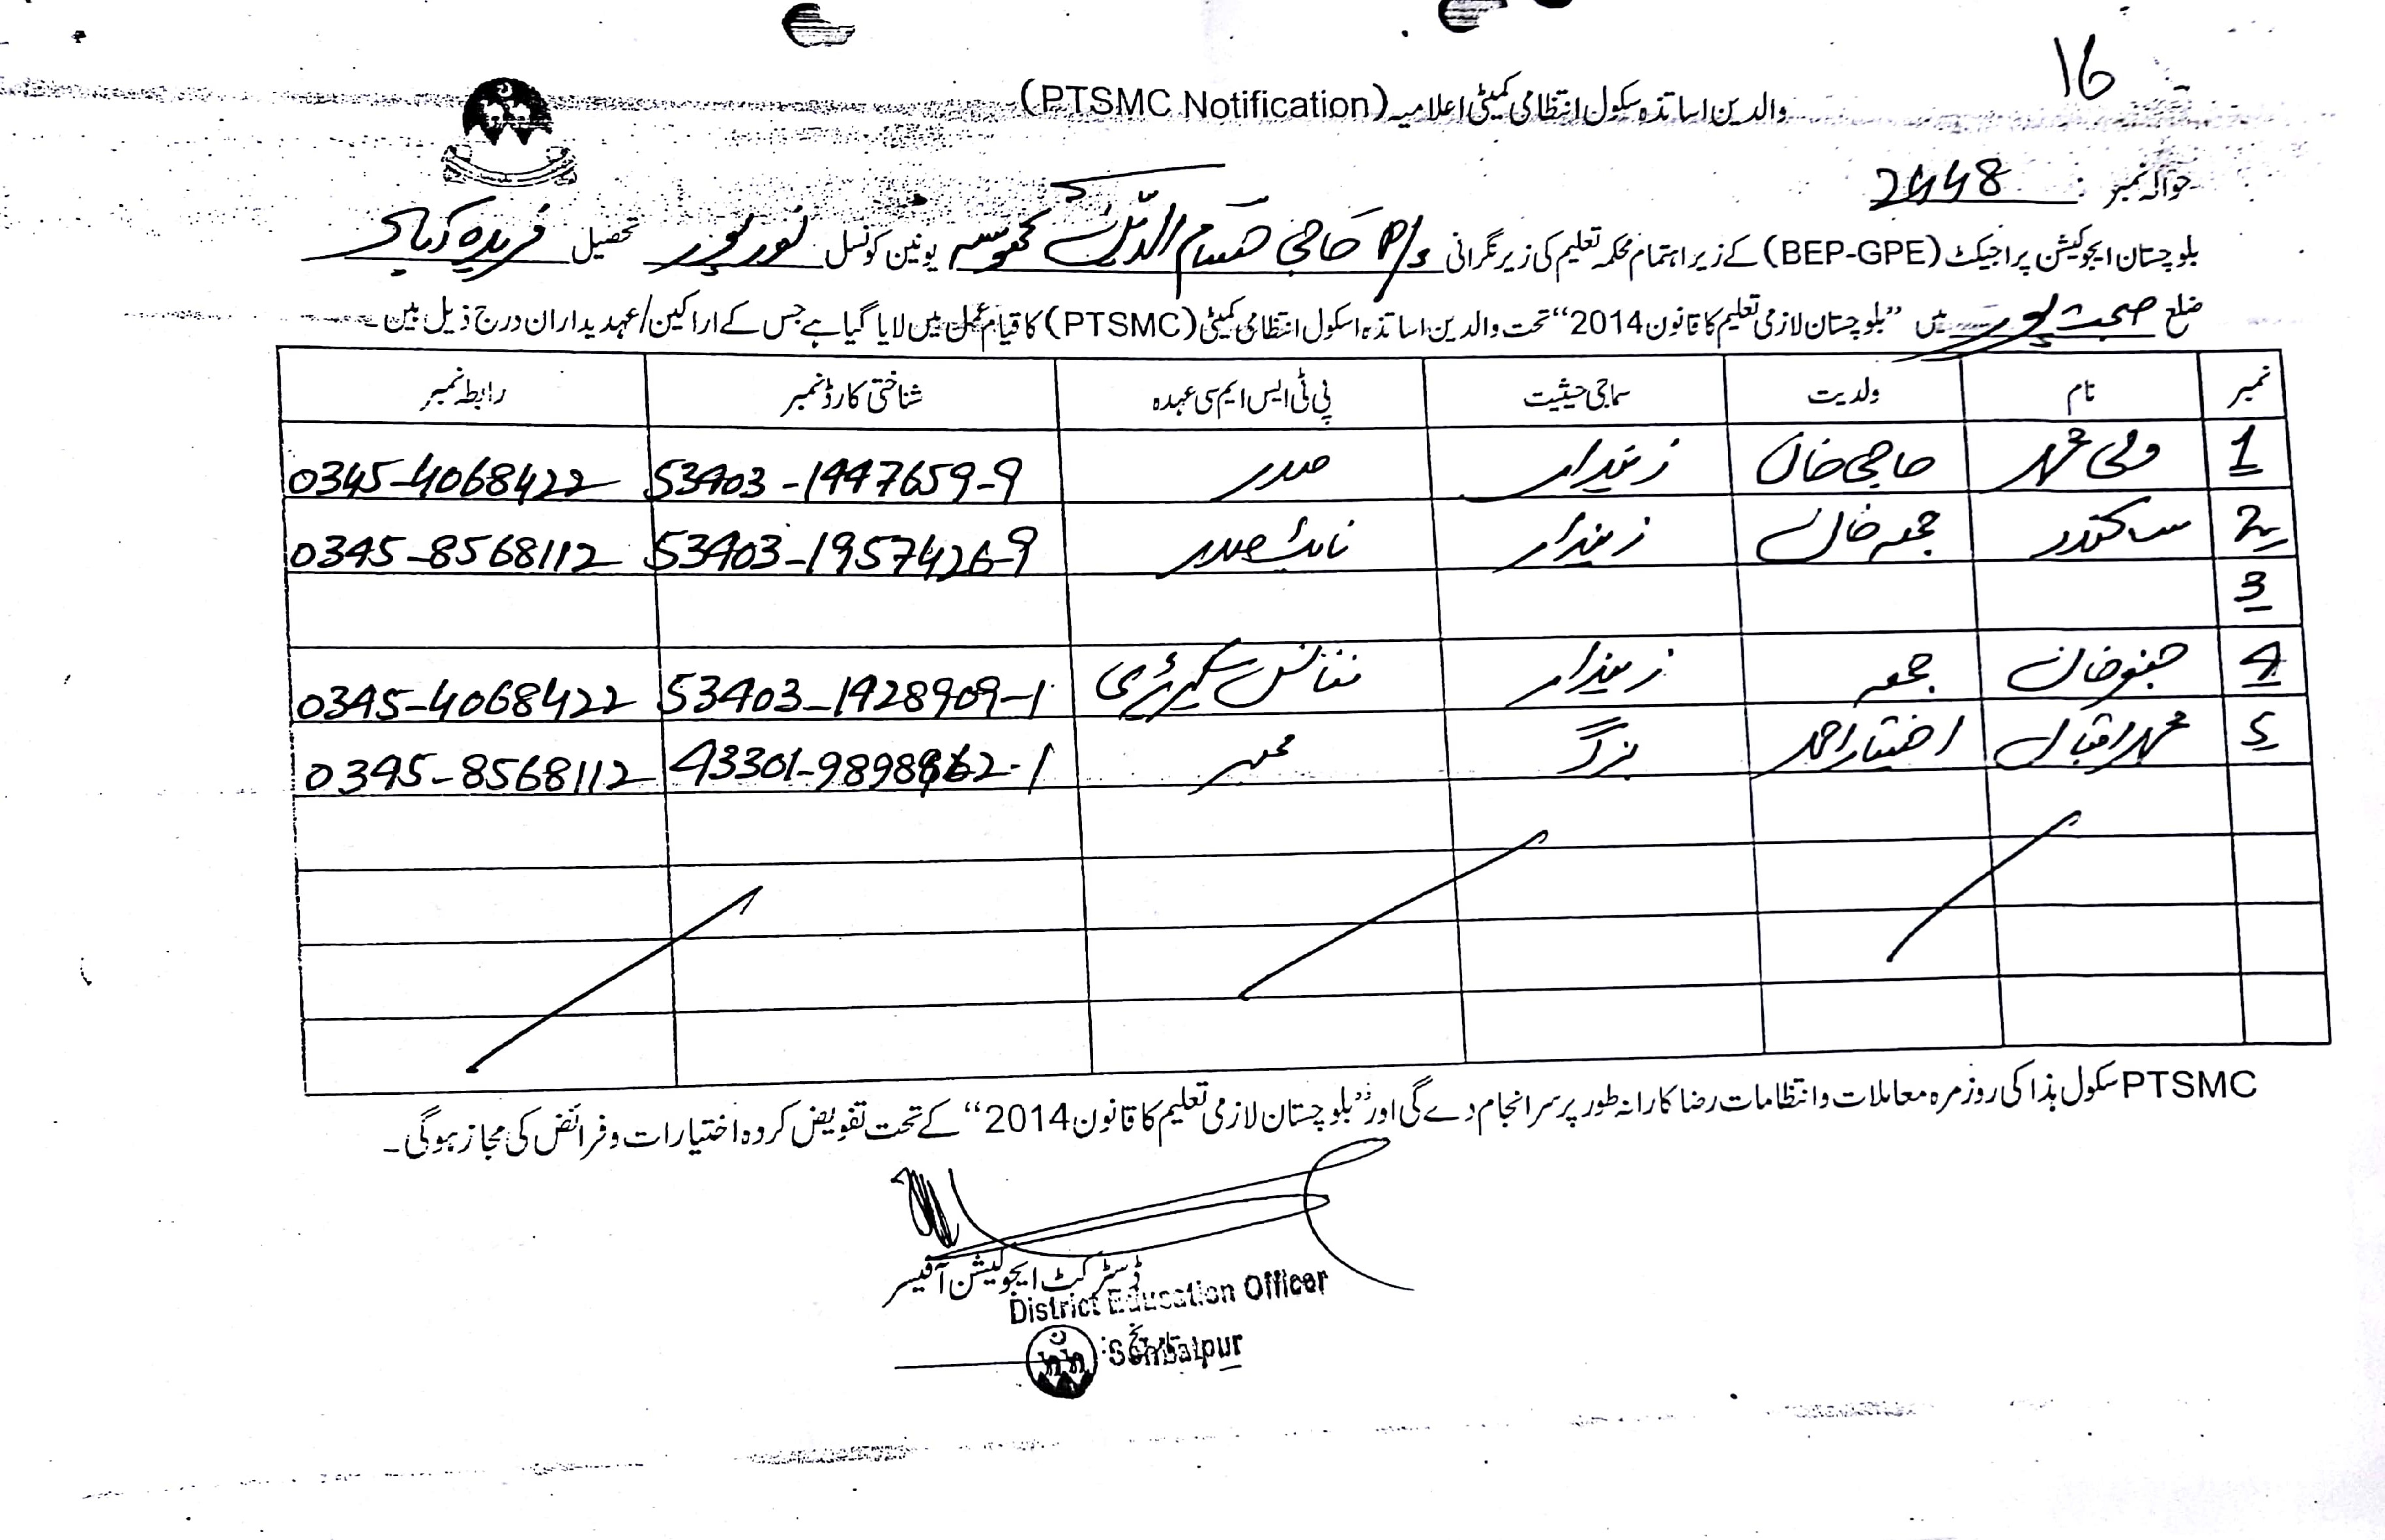 16
والدین اساتذہ سکول انتظامی کمیٹی اعلامیہ (PTSMC Notification)
حوالہ نمبر : 2448
بلوچستان ایجوکیشن پراجیکٹ (BEP-GPE) کے زیر اہتمام محکمہ تعلیم کی زیر نگرانی P/s حاجی حسام الدین کھوسہ یونین کونسل نور پور تحصیل فرید آباد
ضلع صحبت پور میں ”بلوچستان لازمی تعلیم کا قانون 2014“ تحت والدین اساتذہ اسکول انتظامی کمیٹی (PTSMC) کا قیام عمل میں لایا گیا ہے جس کے اراکین/عہدیداران درج ذیل ہیں۔
نمبر نام ولدیت سماجی حیثیت پی ٹی ایس ایم سی عہدہ شناختی کارڈ نمبر رابطہ نمبر
1 ولی محمد حاجی خان زمیندار صدر 53403-1447659-9 0345-4068422
2 سکندر جمعہ خان زمیندار نائب صدر 53403-1957426-9 0345-8568112
3
4 خان جمعہ زمیندار فنانس سیکریٹری 53403-1428909-1 0345-4068422
5 محمد اقبال اختیار احمد بزرگ ممبر 0345-8568112
PTSMC سکول ہذا کی روز مرہ معاملات و انتظامات رضا کارانہ طور پر سرانجام دے گی اور ”بلوچستان لازمی تعلیم کا قانون 2014“ کے تحت تفویض کردہ اختیارات و فرائض کی مجاز ہوگی۔
ڈسٹرکٹ ایجوکیشن آفیسر
District Education Officer
Sohbatpur